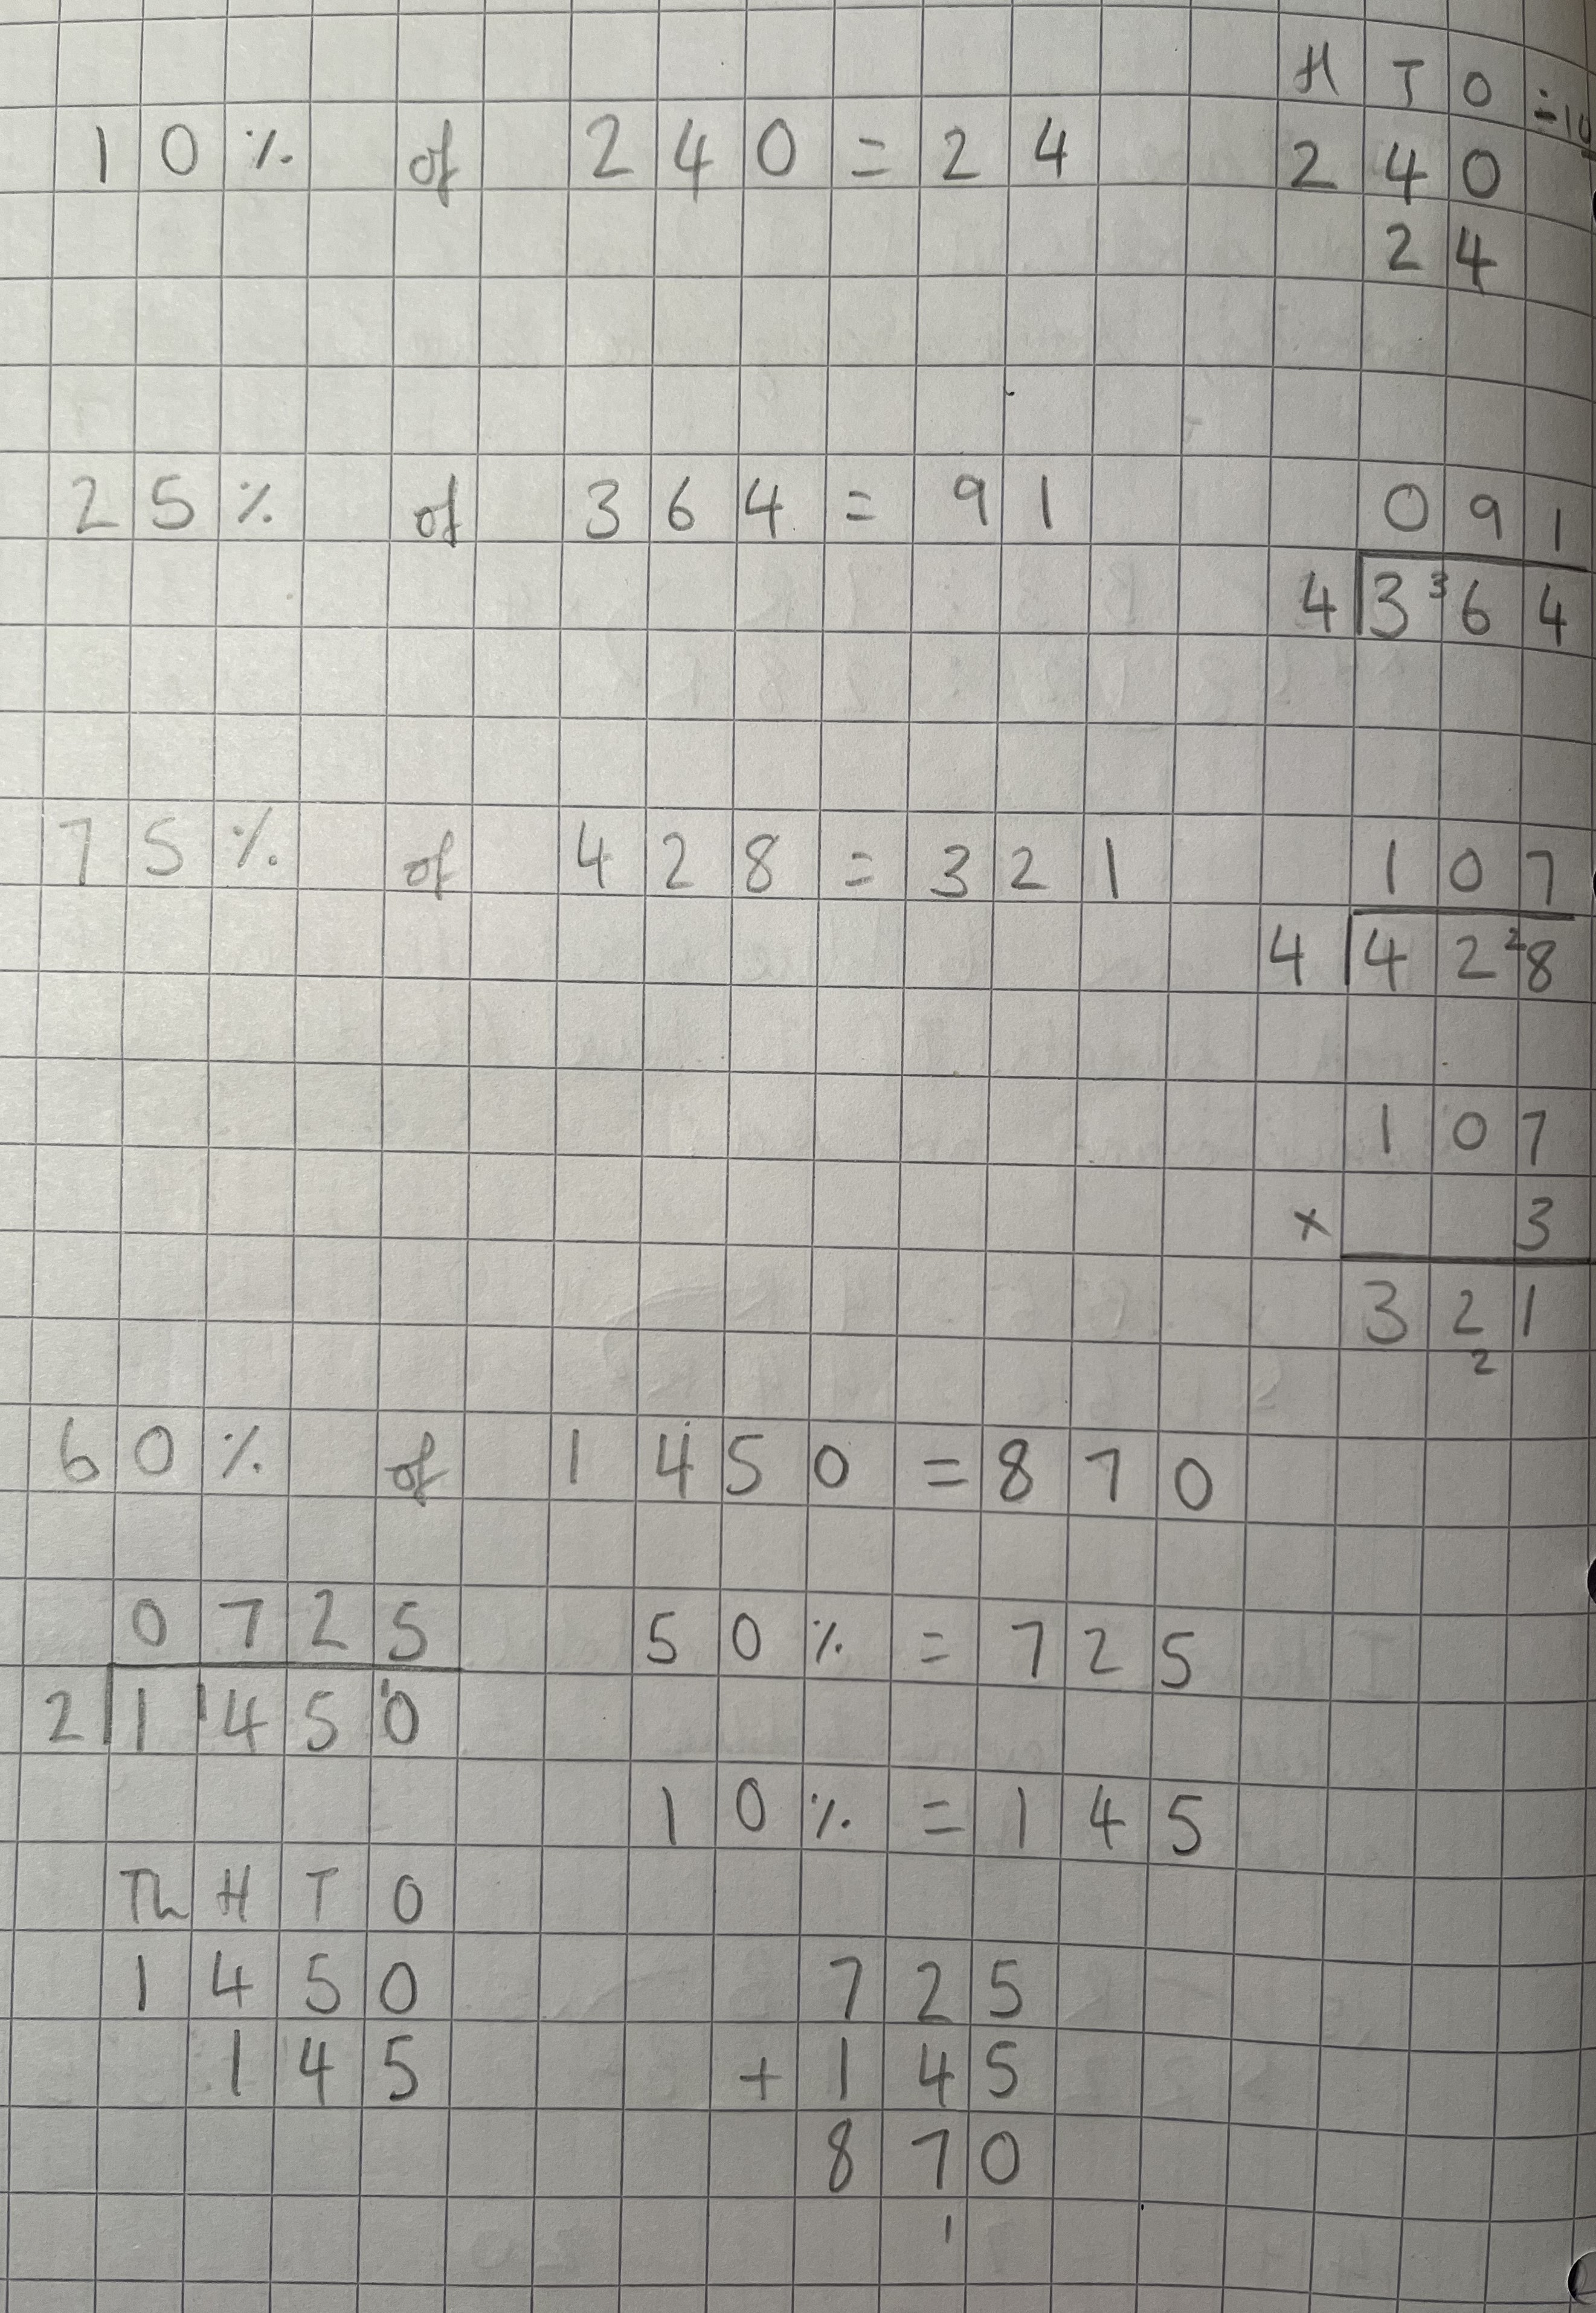 H T O ÷10
10% of 240 = 24
240
24
25% of 364 = 91
091
4 3 ³6 4
75% of 428 = 321
107
4 4 2 ²8
107
× 3
321
2
60% of 1450 = 870
0725
2 1 ¹4 5 ¹0
50% = 725
10% = 145
Th H T O
1450
145
725
+ 145
870
1